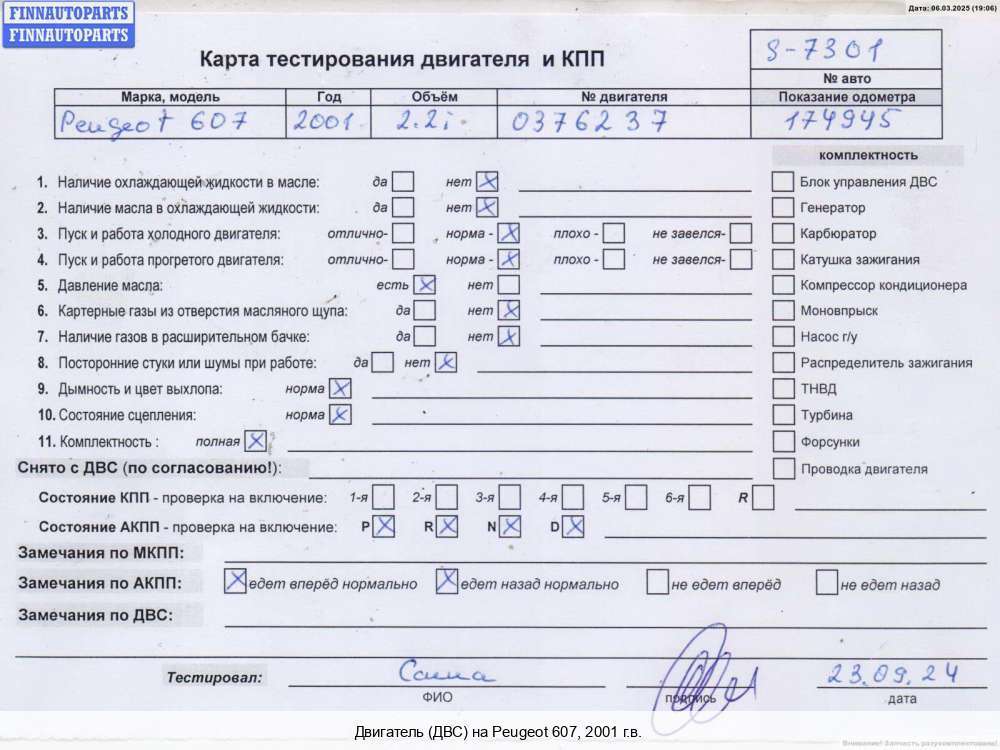 FINNAUTOPARTS
FINNAUTOPARTS
Дата: 06.03.2025 (19:06)
Карта тестирования двигателя и КПП
S-7301
№ авто
Марка, модель Год Объём № двигателя Показание одометра
Peugeot 607 2001 2.2i 0376237 174945
комплектность
1. Наличие охлаждающей жидкости в масле: да нет Блок управления ДВС
2. Наличие масла в охлаждающей жидкости: да нет Генератор
3. Пуск и работа холодного двигателя: отлично- норма - плохо - не завелся- Карбюратор
4. Пуск и работа прогретого двигателя: отлично- норма - плохо - не завелся- Катушка зажигания
5. Давление масла: есть нет Компрессор кондиционера
6. Картерные газы из отверстия масляного щупа: да нет Моновпрыск
7. Наличие газов в расширительном бачке: да нет Насос г/у
8. Посторонние стуки или шумы при работе: да нет Распределитель зажигания
9. Дымность и цвет выхлопа: норма ТНВД
10. Состояние сцепления: норма Турбина
11. Комплектность : полная Форсунки
Снято с ДВС (по согласованию!): Проводка двигателя
Состояние КПП - проверка на включение: 1-я 2-я 3-я 4-я 5-я 6-я R
Состояние АКПП - проверка на включение: P R N D
Замечания по МКПП:
Замечания по АКПП: едет вперёд нормально едет назад нормально не едет вперёд не едет назад
Замечания по ДВС:
Тестировал: Саша 23.09.24
ФИО подпись дата
Двигатель (ДВС) на Peugeot 607, 2001 г.в.
Внимание! Запчасть разукомплектована!